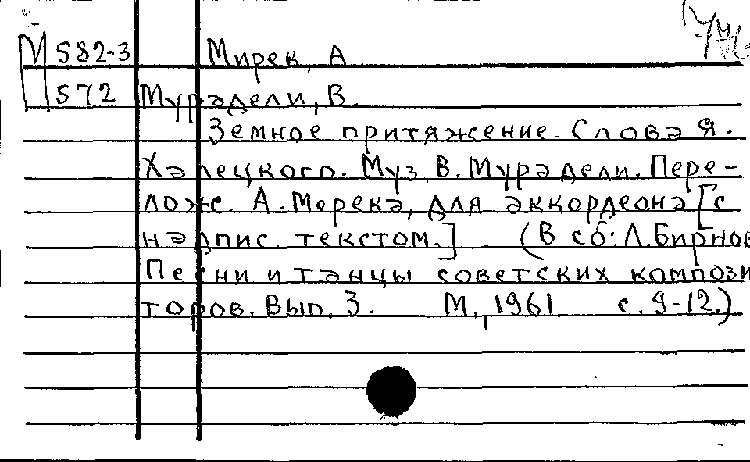 М 582-3 Мирек, А
572 Мурадели, В.
Земное притяжение. Слова Я.
Халецкого. Муз. В. Мурадели. Пере-
лож. А. Мирека, для аккордеона [с
надпис. текстом.] (В сб: Л. Бирнов
Песни и танцы советских компози
торов. Вып. 3. М., 1961 с. 9-12.)